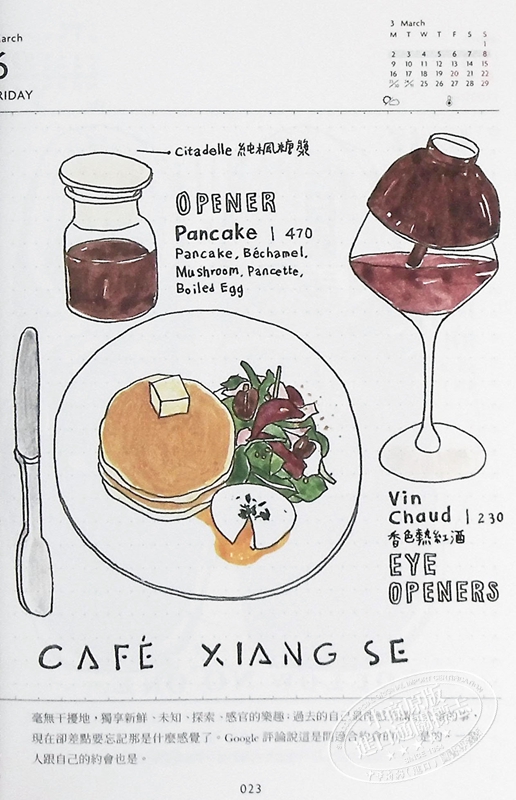 arch
6
RIDAY
3 March
M T W T F S S
1
2 3 4 5 6 7 8
9 10 11 12 13 14 15
16 17 18 19 20 21 22
25 26 27 28 29
Citadelle 純楓糖漿
OPENER
Pancake | 470
Pancake, Béchamel,
Mushroom, Pancette,
Boiled Egg
Vin
Chaud | 230
香色熱紅酒
EYE
OPENERS
CAFÉ XIANG SE
毫無干擾地，獨享新鮮、未知、探索、感官的樂趣；過去的自己最
現在卻差點要忘記那是什麼感覺了。Google 評論說這是間適合約會的
人跟自己的約會也是。
023